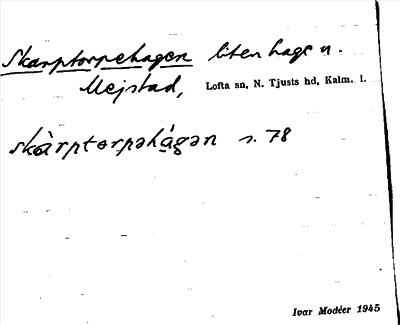 Skarptorpehagen liten hage n.
Mejstad, Lofta sn, N. Tjusts hd, Kalm. l.
skàrptorpəhágən s. 78
Ivar Modéer 1945